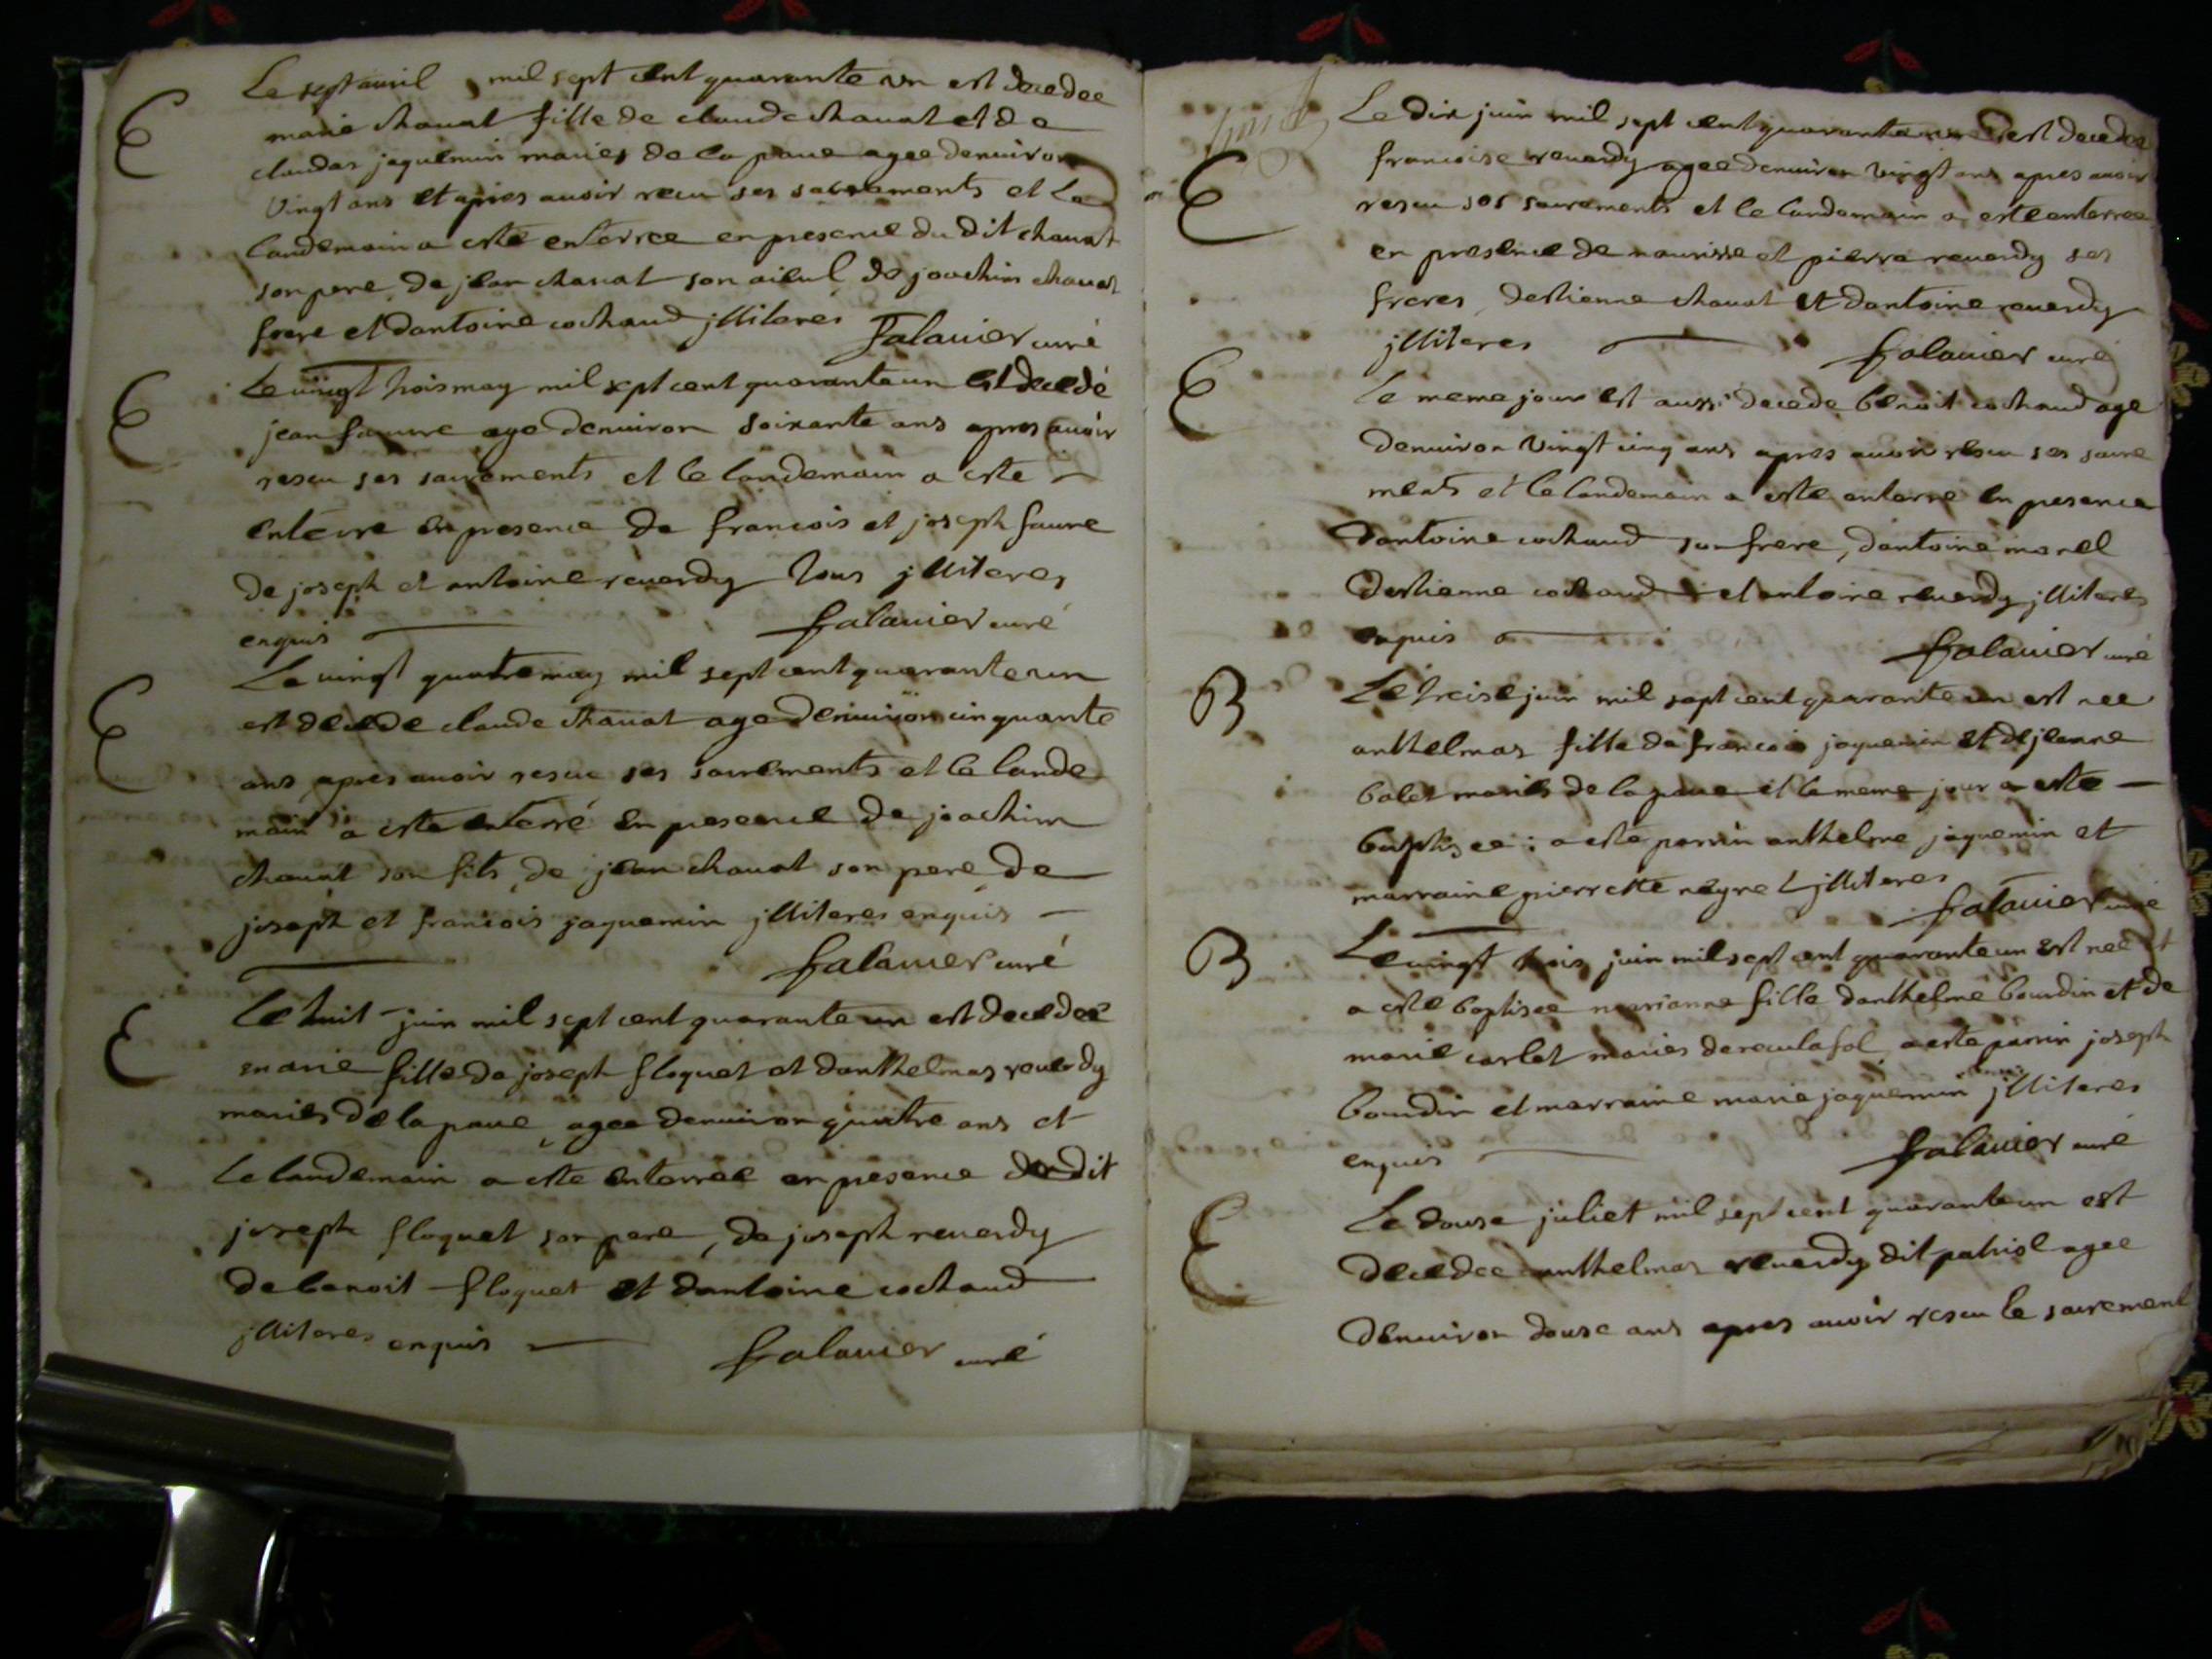 Le sept avril mil sept cent quarante un est decedee
E
marie chavat fille de claude chavat et de
claudas jaquemin maries de la paue agee denuiron
vingt ans et apres auoir recu ses sacrements et Le
landemain a esté enterree en presence du dit chavat
son pere, de jean chavat son aieul de joachim chavat
frere et dantoine cochaud jlliteres falavier curé
Le vingt trois may mil sept cent quarante un est decedé
E
jean faure age denuiron soixante ans apres auoir
resçu ses sacrements et le landemain a esté
enterre en presence de francois et joseph faure
de joseph et antoine reuerdy tous jlliteres
enquis falavier curé
Le vingt quatre may mil sept cent quarante un
E
est decede claude chavat age denuiron cinquante
ans apres auoir rescu ses sacrements et le lande
main a esté enterré en presence de joachim
chavat son fils, de jean chavat son pere de
joseph et francois jaquemin jlliteres enquis
falavier curé
Le huit juin mil sept cent quarante un est decedee
E
marie fille de joseph floquet et danthelmas reuerdy
maries de la paue, agee denuiron quattre ans et
le landemain a esté enterree en presence du dit
joseph floquet son pere, de joseph reuerdy
de benoit floquet et dantoine cochaud
jlliteres enquis falavier curé
Le dix juin mil sept cent quarante un est decedee
E
francoise reuerdy agee denuiron vingt ans apres auoir
rescu ses sacrements et le landemain a esté enterree
en presence de maurisse et pierre reuerdy ses
freres, destienne chavat et dantoine reuerdy
jlliteres falavier curé
E
Le meme jour est aussi decede benoit cochaud age
denuiron vingt cinq ans apres auoir rescu ses sacre
ments et le landemain a esté enterre en presence
dantoine cochaud son frere, dantoine morel
destienne cochaud et antoine reuerdy jlliteres
enquis falavier curé
B
Le treise juin mil sept cent quarante un est nee
anthelmas fille de francois jaquemin et de jeanne
balet maries de la paue et le meme jour a esté
baptisee: a esté parrin anthelme jaquemin et
marraine pierrette neyret jlliteres
falavier curé
B
Le vingt trois juin mil sept cent quarante un est nee et
a esté baptisee marianne fille danthelme bourdin et de
marie carlet maries de reculafol a esté parrin joseph
bourdin et marraine marie jaquemin jlliteres
enquis falavier curé
E
Le douse juliet mil sept cent quarante un est
decedee anthelmas reuerdy dit patriol agee
denuiron douse ans apres auoir rescu le sacrement